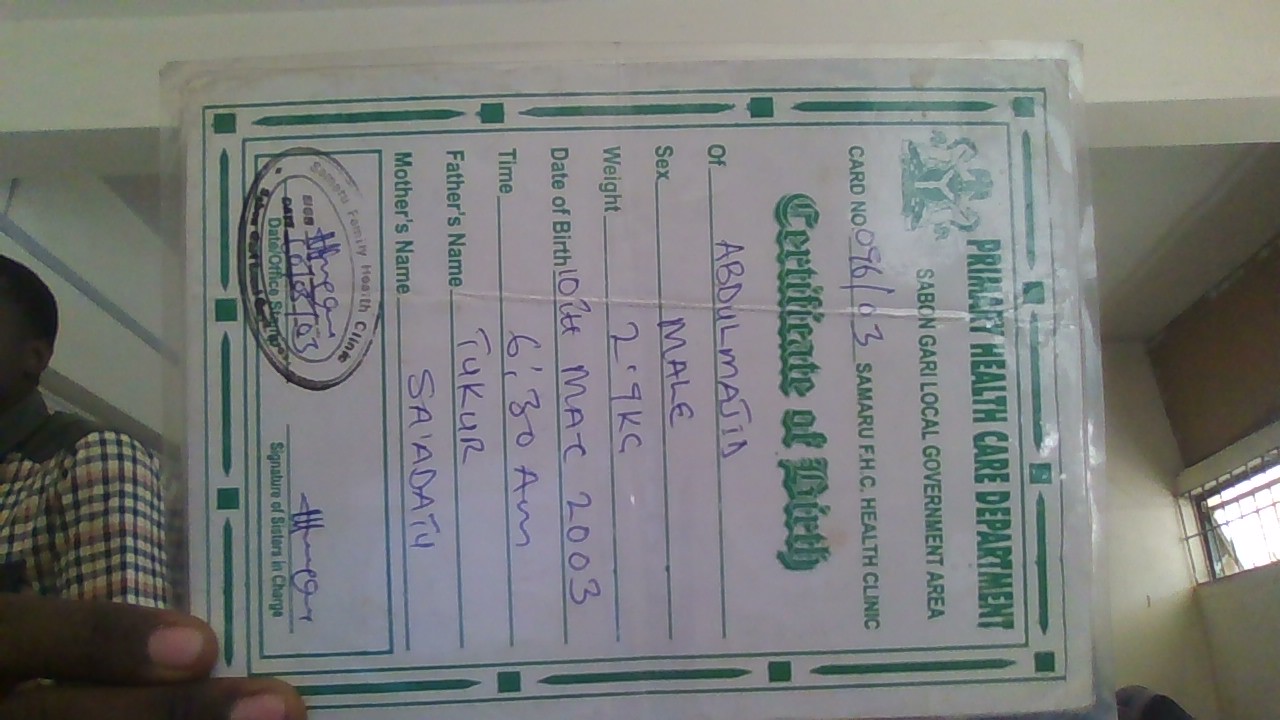 PRIMARY HEALTH CARE DEPARTMENT
SABON GARI LOCAL GOVERNMENT AREA
CARD NO 096/03 SAMARU F.H.C. HEALTH CLINIC
Certificate of Birth
Of ABDULMAJID
Sex MALE
Weight 2.9KG
Date of Birth 10th MAC 2003
Time 6:30 Am
Father's Name TUKUR
Mother's Name SA'ADATU
Samaru Family Health Clinic
SIGN
DATE 10/03/03
Date/Office Stamp
Signature of Sisters in Charge